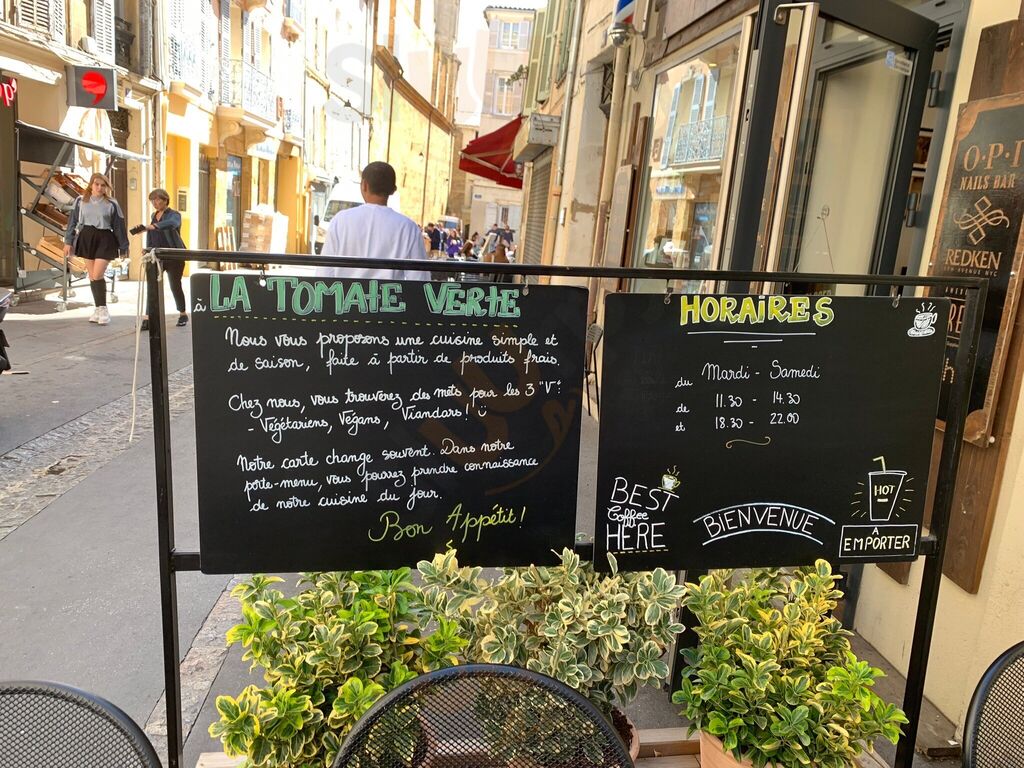 à LA TOMATE VERTE
Nous vous proposons une cuisine simple et
de saison, faite à partir de produits frais.
Chez nous, vous trouverez des mets pour les 3 "V":
- Végétariens, Végans, Viandars!
Notre carte change souvent. Dans notre
porte-menu, vous pouvez prendre connaissance
de notre cuisine du jour.
Bon Appétit!
HORAIRES
du Mardi - Samedi
de 11.30 - 14.30
et 18.30 - 22.00
BEST
Coffee
HERE
BIENVENUE
HOT
À
EMPORTER
O·P·I
NAILS BAR
REDKEN
5TH AVENUE NYC